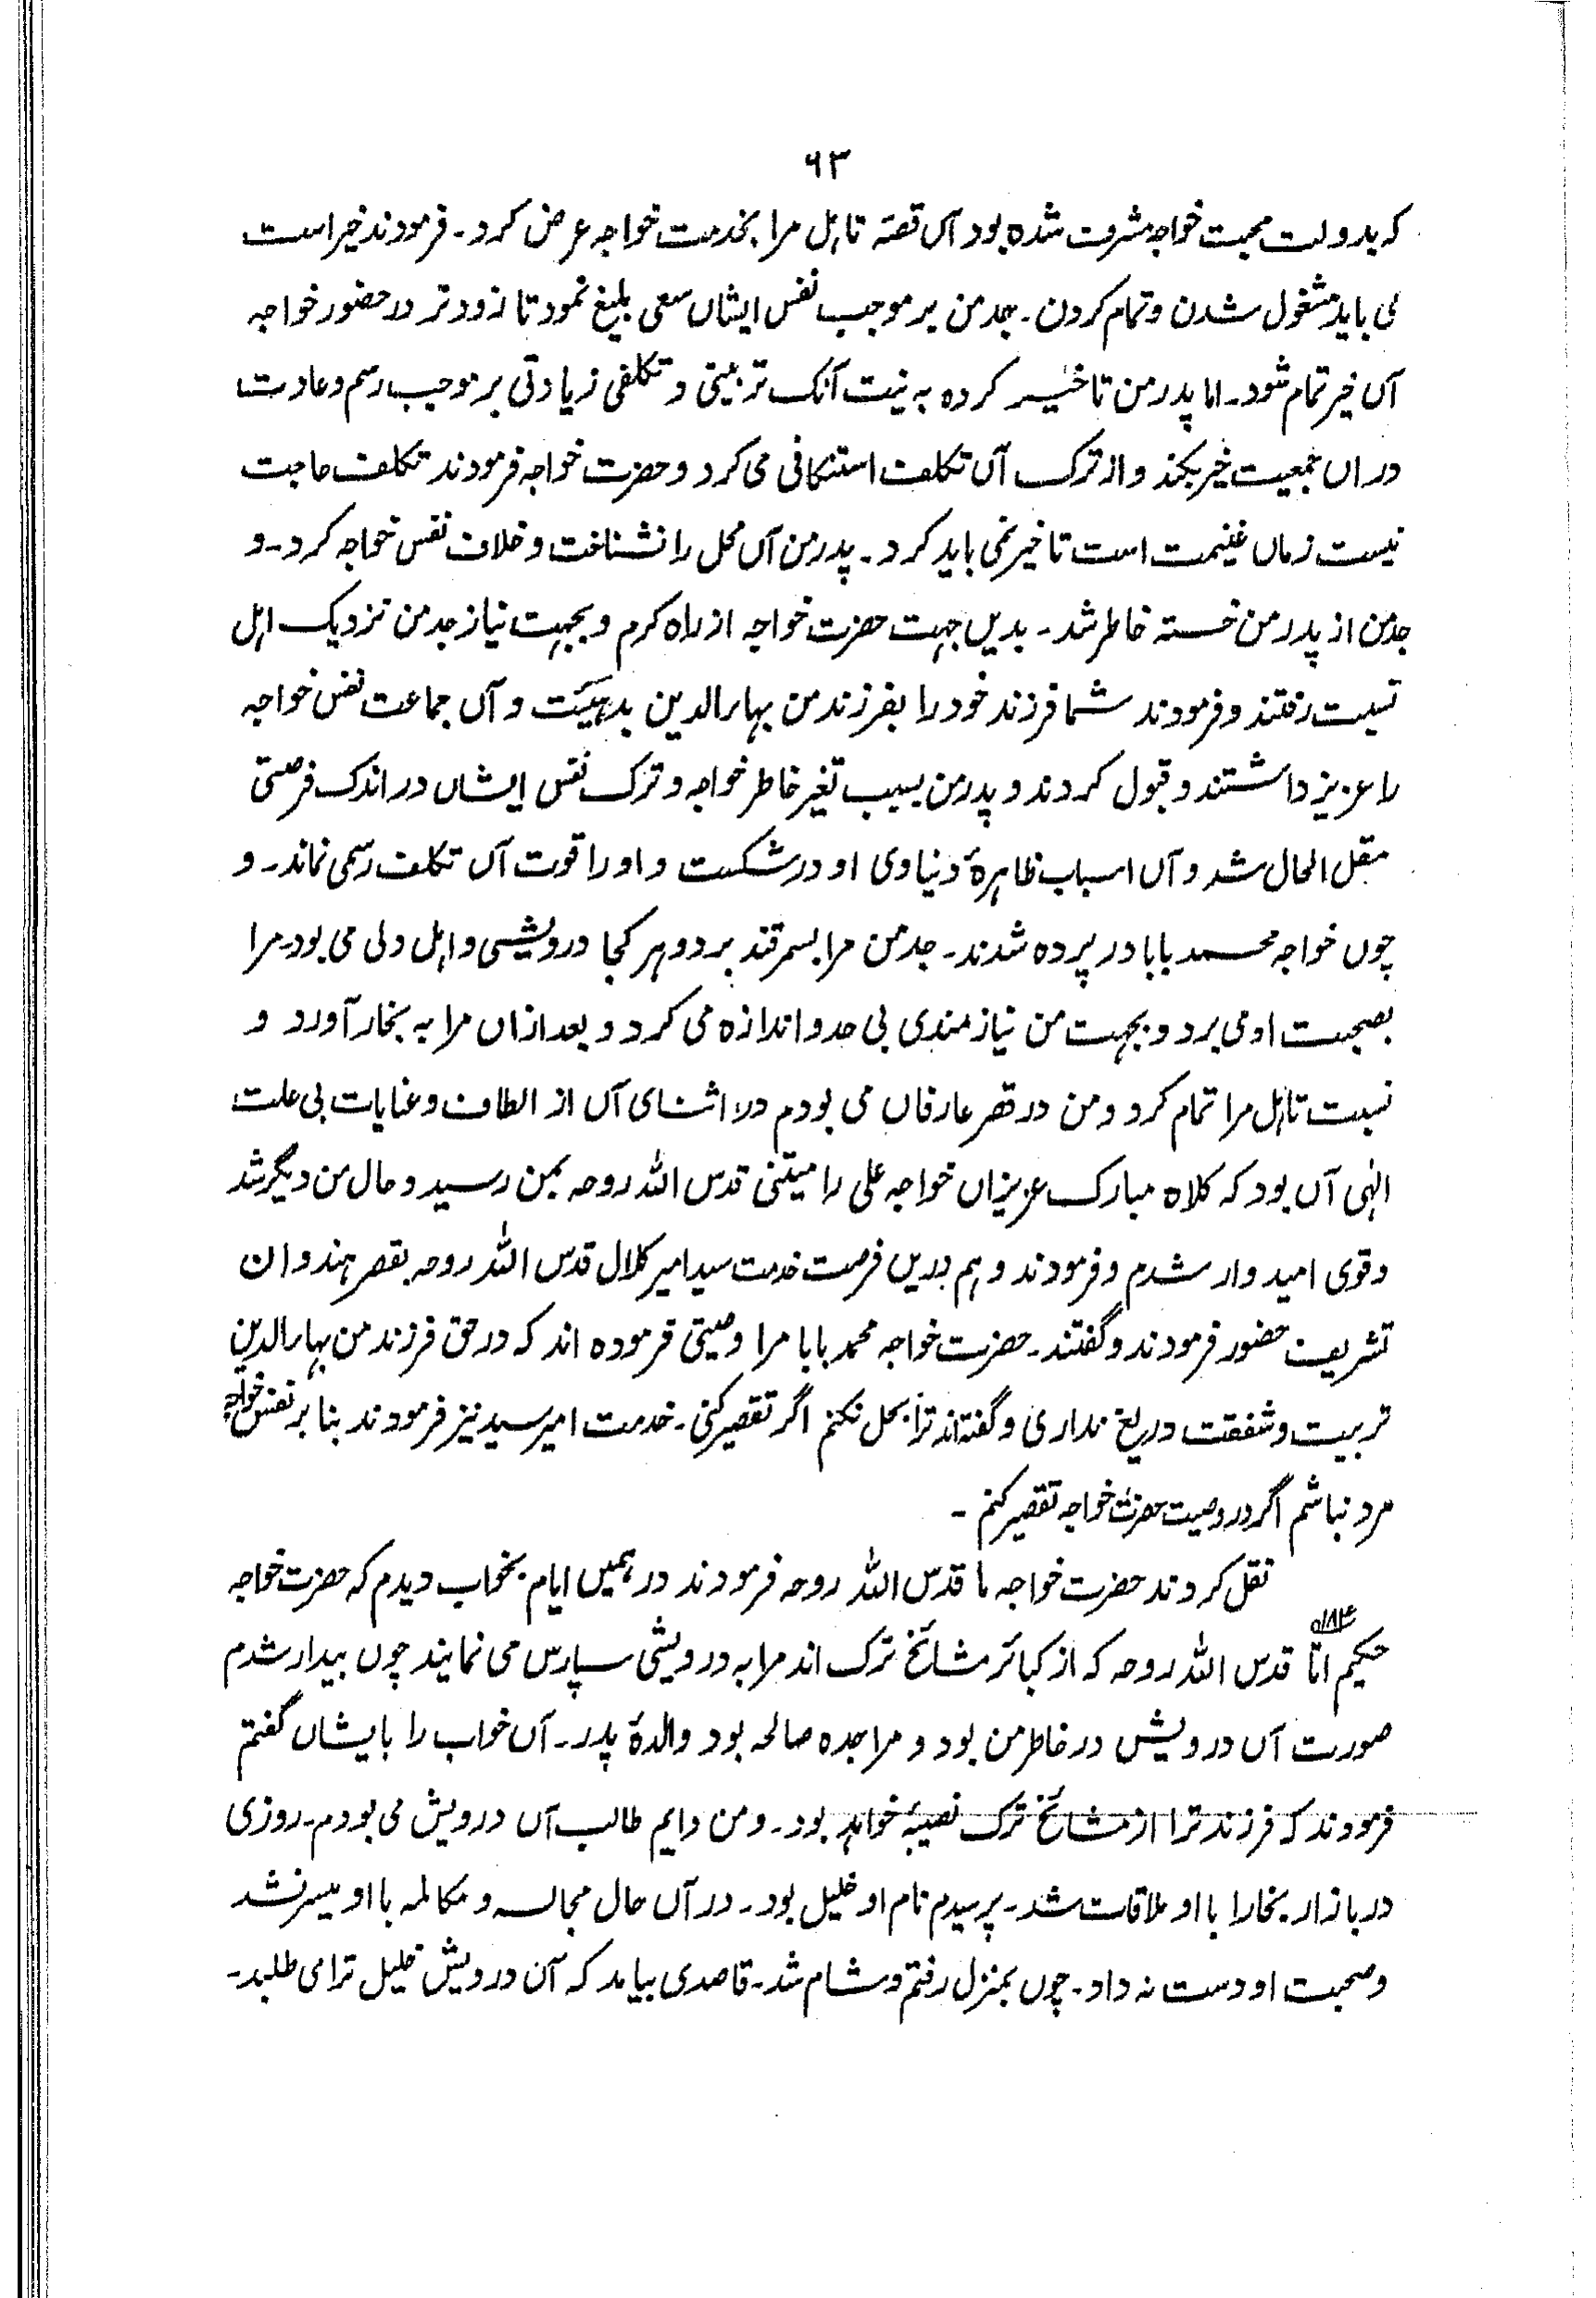 ۹۳
که بدولت محبت خواجه مشرف شده بود آں قصّه تاہل مرا بخدمت خواجه عرض کرد۔ فرمودند خیر است
می باید مشغول شدن و تمام کردن۔ جد من بر موجب نفس ایشاں سعی بلیغ نمود تا زودتر در حضور خواجه
آں خیر تمام شود۔ اما پدر من تاخیر کرده به نیت آنک تزئینی و تکلفی زیادتی بر موجب رسم و عادت
دراں جمعیت خیر بکند و از ترک آں تکلف استنکافی می کرد و حضرت خواجه فرمودند تکلف حاجت
نیست زماں غنیمت است تاخیر نمی باید کرد۔ پدر من آں محل را نشناخت و خلاف نفس خواجه کرد۔ و
جد من از پدر من خسته خاطر شد۔ بدیں جہت حضرت خواجه از راه کرم و بجہت نیاز جد من نزدیک اہل
نسبت رفتند و فرمودند شما فرزند خود را بفرزند من بہاءالدین بدہیت و آں جماعت نفس خواجه
را عزیز داشتند و قبول کردند و پدر من بسبب تغیر خاطر خواجه و ترک نفس ایشاں در اندک فرصتی
مقل الحال شد و آں اسباب ظاہرۀ دنیاوی او در شکست و او را قوت آں تکلف رسمی نماند۔ و
چوں خواجه محمد بابا در پرده شدند۔ جد من مرا بسمرقند برد و ہر کجا درویشی و اہل دلی می بود۔ مرا
بصحبت او می برد و بجہت من نیازمندی بی حد و اندازه می کرد و بعد ازاں مرا به بخار آورد و
نسبت تاہل مرا تمام کرد و من در قصر عارفاں می بودم در اثنای آں از الطاف و عنایات بی علت
الٰہی آں بود که کلاه مبارک عزیزاں خواجه علی رامیتنی قدس اللہ روحه بمن رسید و حال من دیگر شد
و قوی امیدوار شدم و فرمودند و ہم دریں فرصت خدمت سید امیر کلال قدس اللہ روحه بقصر ہندوان
تشریف حضور فرمودند و گفتند۔ حضرت خواجه محمد بابا مرا وصیتی فرموده اند که در حق فرزند من بہاءالدین
تربیت و شفقت دریغ نداری و گفته اند ترا بحل نکنم اگر تقصیر کنی۔ خدمت امیر سید نیز فرمودند بنا بر نفس خواجه
مرد نباشم اگر در وصیت حضرت خواجه تقصیر کنم ۔
نقل کردند حضرت خواجه ما قدس اللہ روحه فرمودند در ہمیں ایام بخواب دیدم که حضرت خواجه
حکیم اتا قدس اللہ روحه که از کبائر مشائخ ترک اند مرا به درویشی سپارس می نمایند چوں بیدار شدم
صورت آں درویش در خاطر من بود و مرا جده صالحه بود والدۀ پدر۔ آں خواب را بایشاں گفتم
فرمودند که فرزند ترا از مشائخ ترک نصیبۂ خواہد بود۔ و من دایم طالب آں درویش می بودم۔ روزی
در بازار بخارا با او ملاقات شد۔ پرسیدم نام او خلیل بود۔ در آں حال مجالسه و مکالمه با او میسر نشد
و صحبت او دست نه داد۔ چوں بمنزل رفتم و شام شد۔ قاصدی بیامد که آن درویش خلیل ترا می طلبد۔